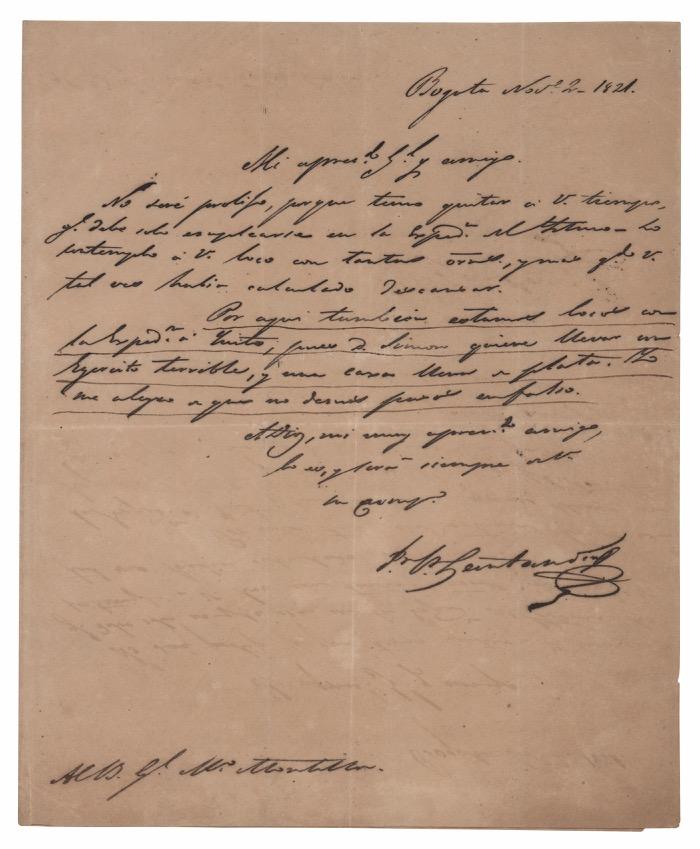 Bogota Nov.e 2 - 1821.
Mi aprec.do G.l y amigo.
No seré prolijo, porque temo quitar á V. tiempo,
q.e debe solo emplearse en la Exped.n del Istmo - Lo
contemplo á V. loco con tantas orns., y mas q.do V.
tal vez habia calculado descansar.
Por aqui tambien estamos locos con
la Exped.n á Quito, pues D. Simon quiere llevar un
Egercito terrible, y una casa llena de plata. Yo
me alegro á que no demos pasos en falso.
A Dios, mi muy aprec.do amigo,
lo es, y será siempre de V.
su
F. P. Santander
Al B. G.l M.no Montilla.